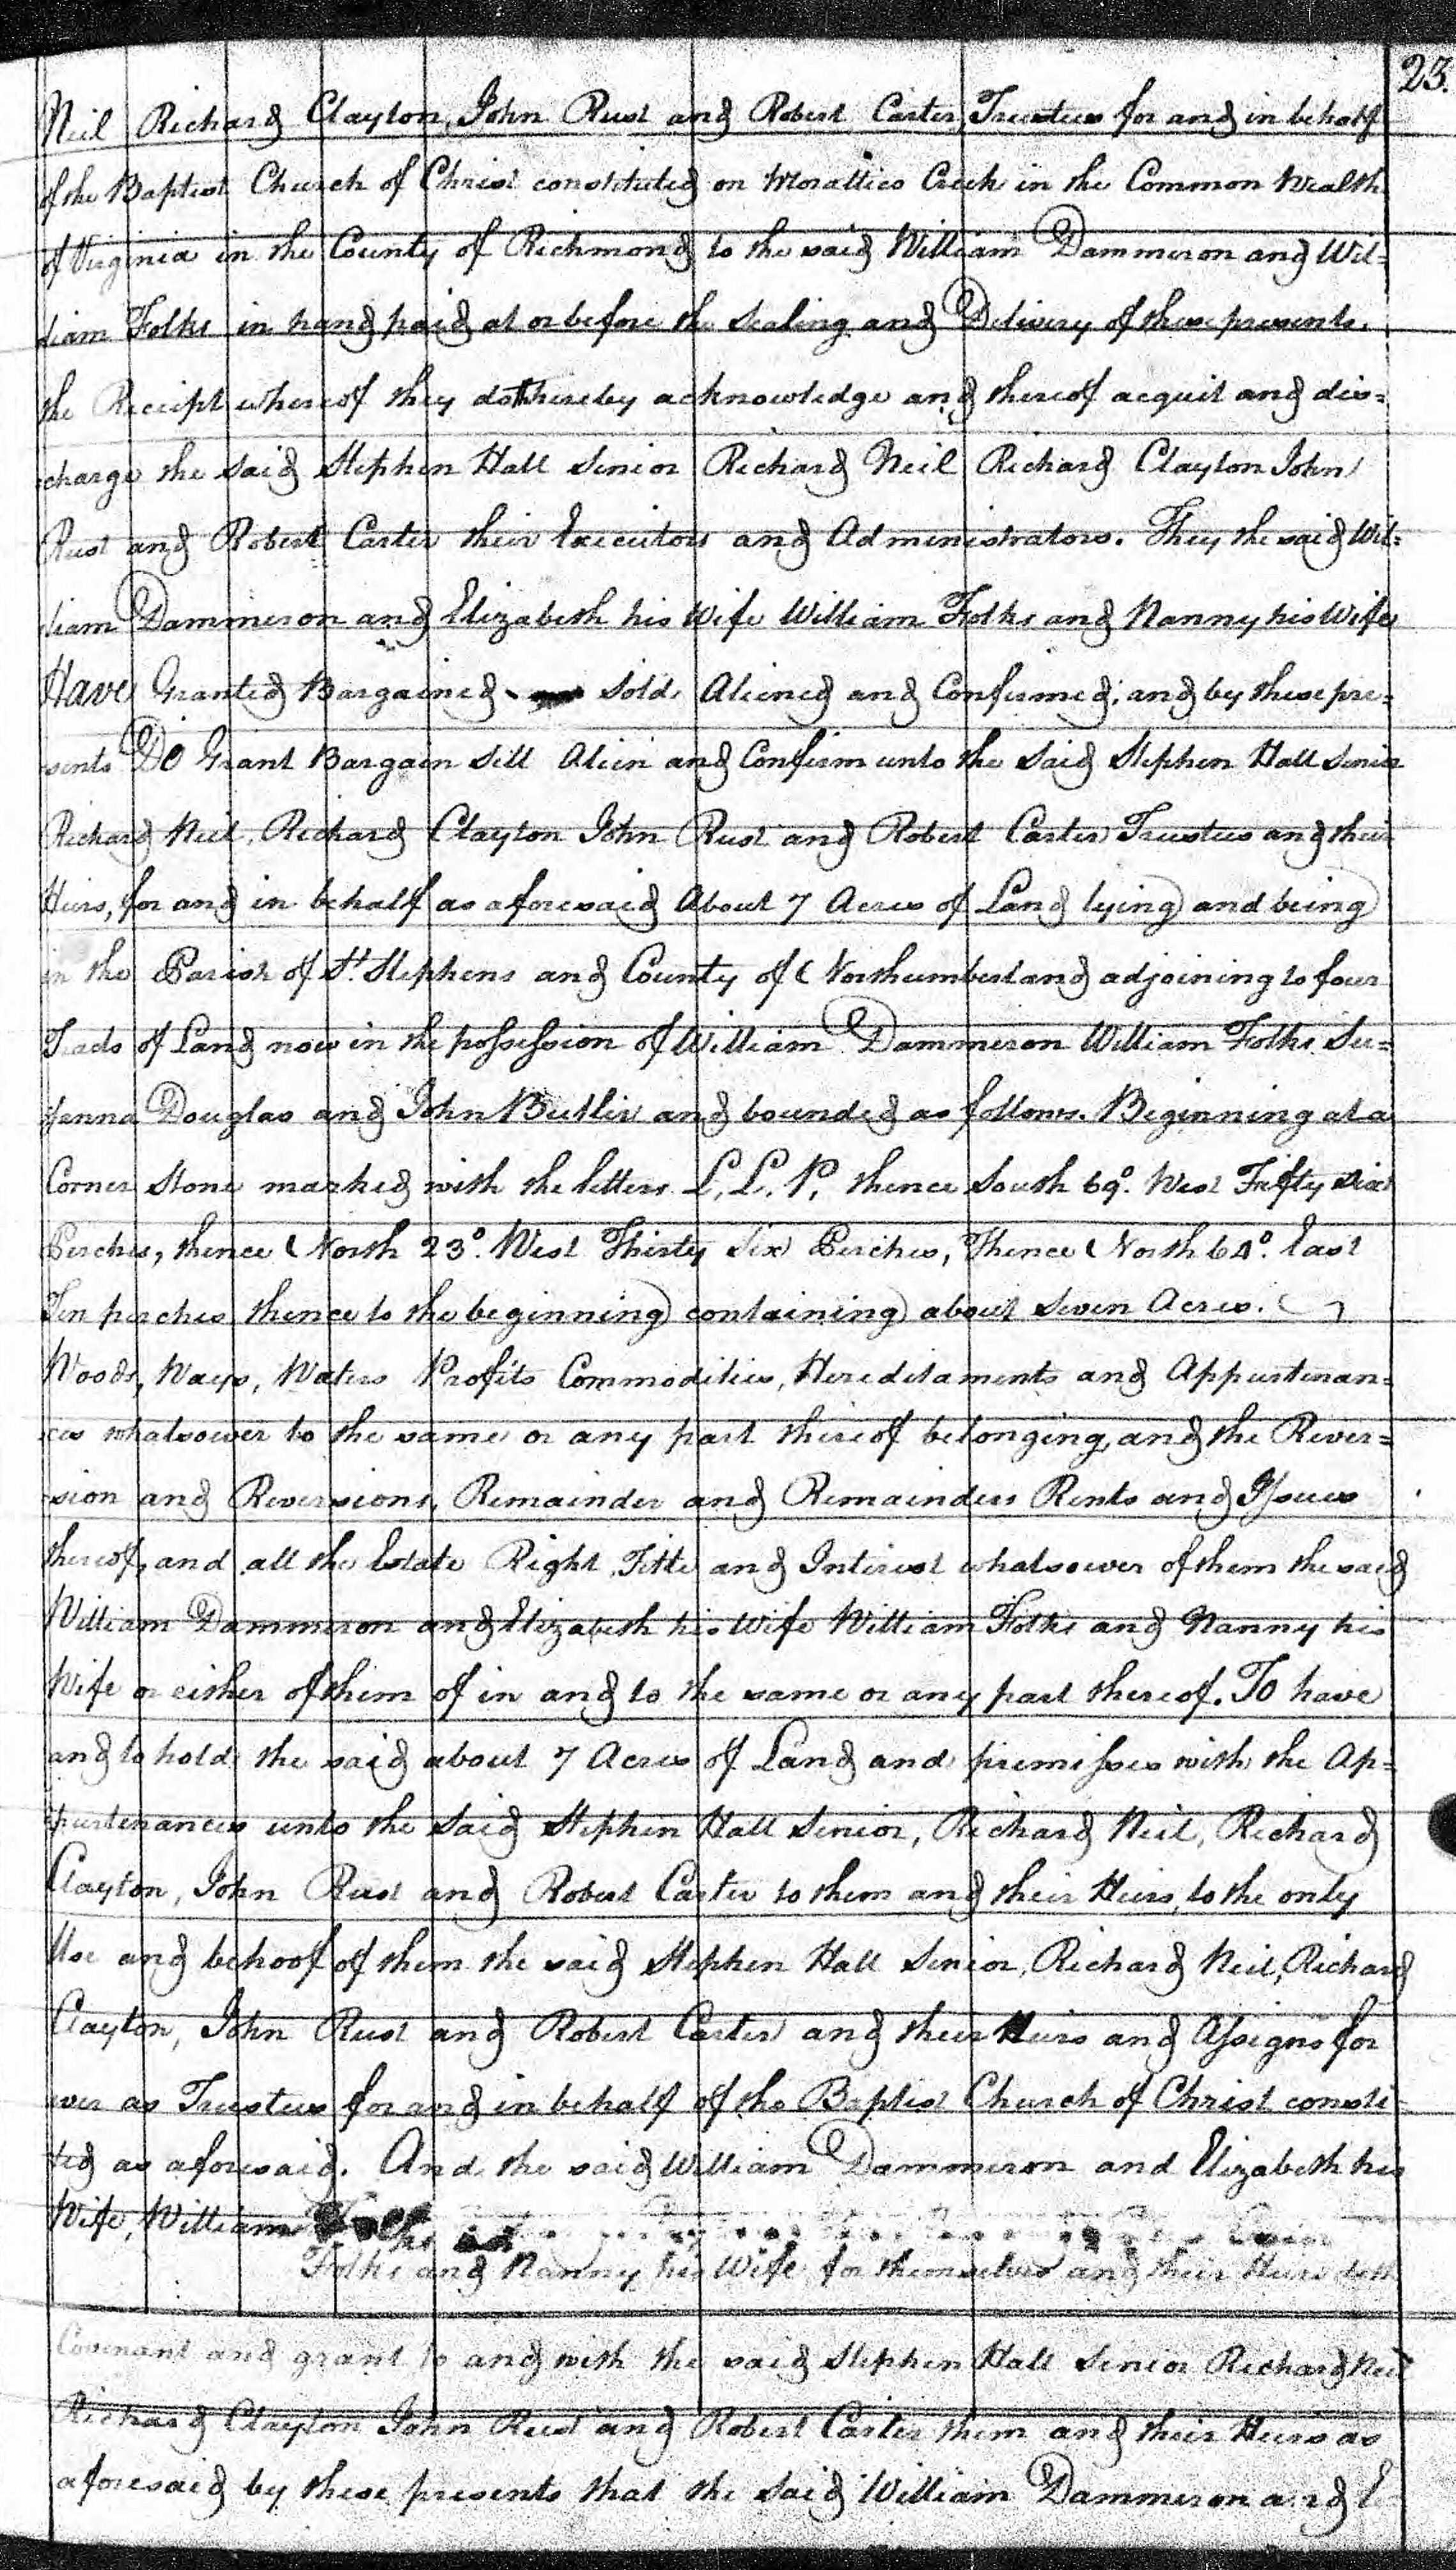 23.
Neil Richard Clayton, John Rust and Robert Carter, Trustees for and in behalf
of the Baptist Church of Christ constituted on Morattico Creek in the Common Wealth
of Virginia in the County of Richmond to the said William Dammeron and Wil=
liam Folks in hand paid at or before the Sealing and Delivery of these presents,
the Receipt whereof they doth hereby acknowledge and thereof acquit and dis=
charge the said Stephen Hall Senior Richard Neil Richard Clayton John
Rust and Robert Carter their Executors and Administrators. They the said Wil=
liam Dammeron and Elizabeth his Wife William Folks and Nanny his Wife
Have Granted Bargained Sold, Aliened and Confirmed, and by these pre=
sents Do Grant Bargain Sell Alien and Confirm unto the said Stephen Hall Senior
Richard Neil, Richard Clayton John Rust and Robert Carter Trustees and their
Heirs, for and in behalf as aforesaid About 7 Acres of Land lying and being
in the Parish of St. Stephens and County of Northumberland adjoining to four
Tracts of Land now in the possession of William Dammeron William Folks Su=
sanna Douglas and John Butler and bounded as follows. Beginning at a
Corner Stone marked with the letters L, L. P, thence South 69°. West Fifty six
Perches, thence North 23°. West Thirty Six Perches, Thence North 64°. East
Ten perches thence to the beginning containing about Seven Acres.
Woods, Ways, Waters Profits Commodities, Hereditaments and Appurtenan=
ces whatsoever to the same or any part thereof belonging, and the Rever=
sion and Reversions, Remainder and Remainders Rents and Issues
thereof, and all the Estate Right Title and Interest whatsoever of them the said
William Dammeron and Elizabeth his Wife William Folks and Nanny his
Wife or either of them of in and to the same or any part thereof. To have
and to hold the said about 7 Acres of Land and premisses with the Ap=
purtenances unto the said Stephen Hall Senior, Richard Neil, Richard
Clayton, John Rust and Robert Carter to them and their Heirs, to the only
Use and behoof of them the said Stephen Hall Senior, Richard Neil, Richard
Clayton, John Rust and Robert Carter and their Heirs and Assigns for
ever as Trustees for and in behalf of the Baptist Church of Christ consti=
ted as aforesaid. And the said William Dammeron and Elizabeth his
Wife, William
Folks and Nanny his Wife for themselves and their Heirs doth
Covenant and grant to and with the said Stephen Hall Senior Richard Neil
Richard Clayton John Rust and Robert Carter them and their Heirs as
aforesaid by these presents that the said William Dammeron and E